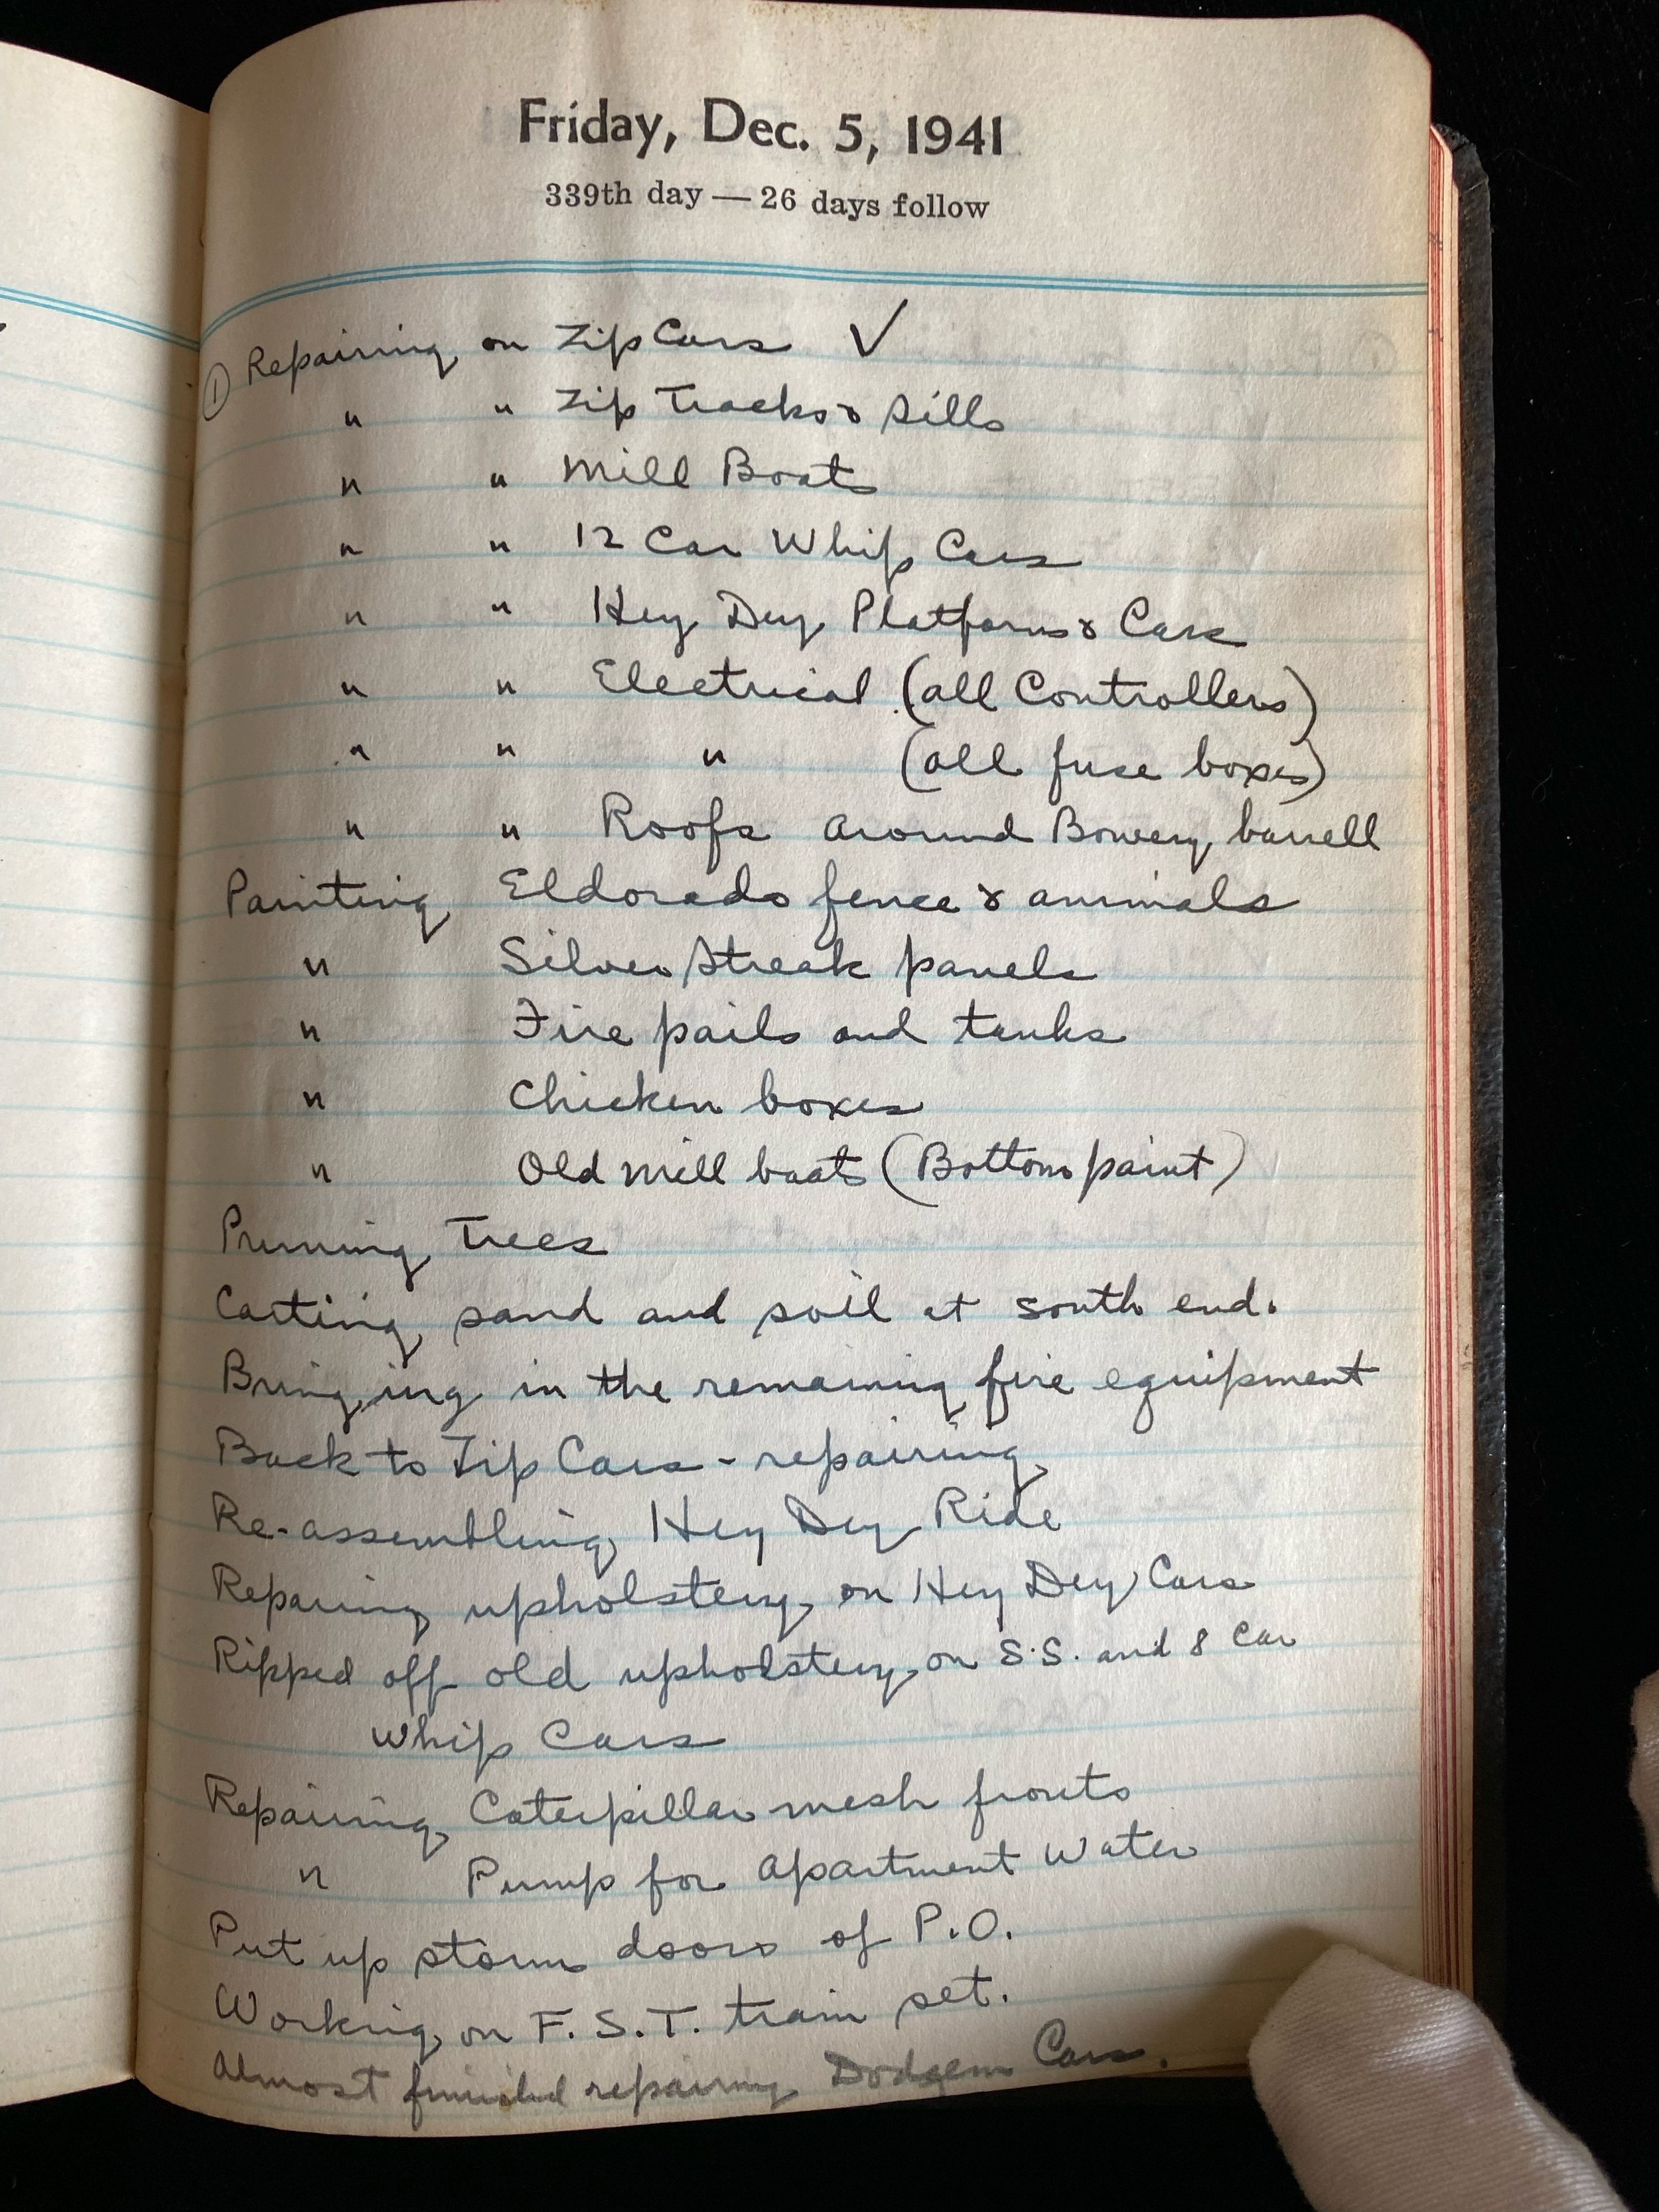 Friday, Dec. 5, 1941
339th day — 26 days follow
① Repairing on Zip Cars ✓
" " Zip Tracks & Sills
" " Mill Boats
" " 12 Car Whip Cars
" " Hey Dey Platforms & Cars
" " Electrical (all Controllers)
" " " (all fuse boxes)
" " Roofs around Bowery barrell
Painting Eldorado fence & animals
" Silver Streak panels
" Fire pails and tanks
" Chicken boxes
" Old Mill boats (Bottom paint)
Pruning Trees
Carting sand and soil at south end.
Bringing in the remaining fire equipment
Back to Zip Cars - repairing
Re-assembling Hey Dey Ride
Repairing upholstery on Hey Dey Cars
Ripped off old upholstery on S.S. and 8 Car
Whip Cars
Repairing Caterpillar mesh fronts
" Pump for Apartment Water
Put up storm doors of P.O.
Working on F.S.T. train set.
Almost finished repairing Dodgem Cars.